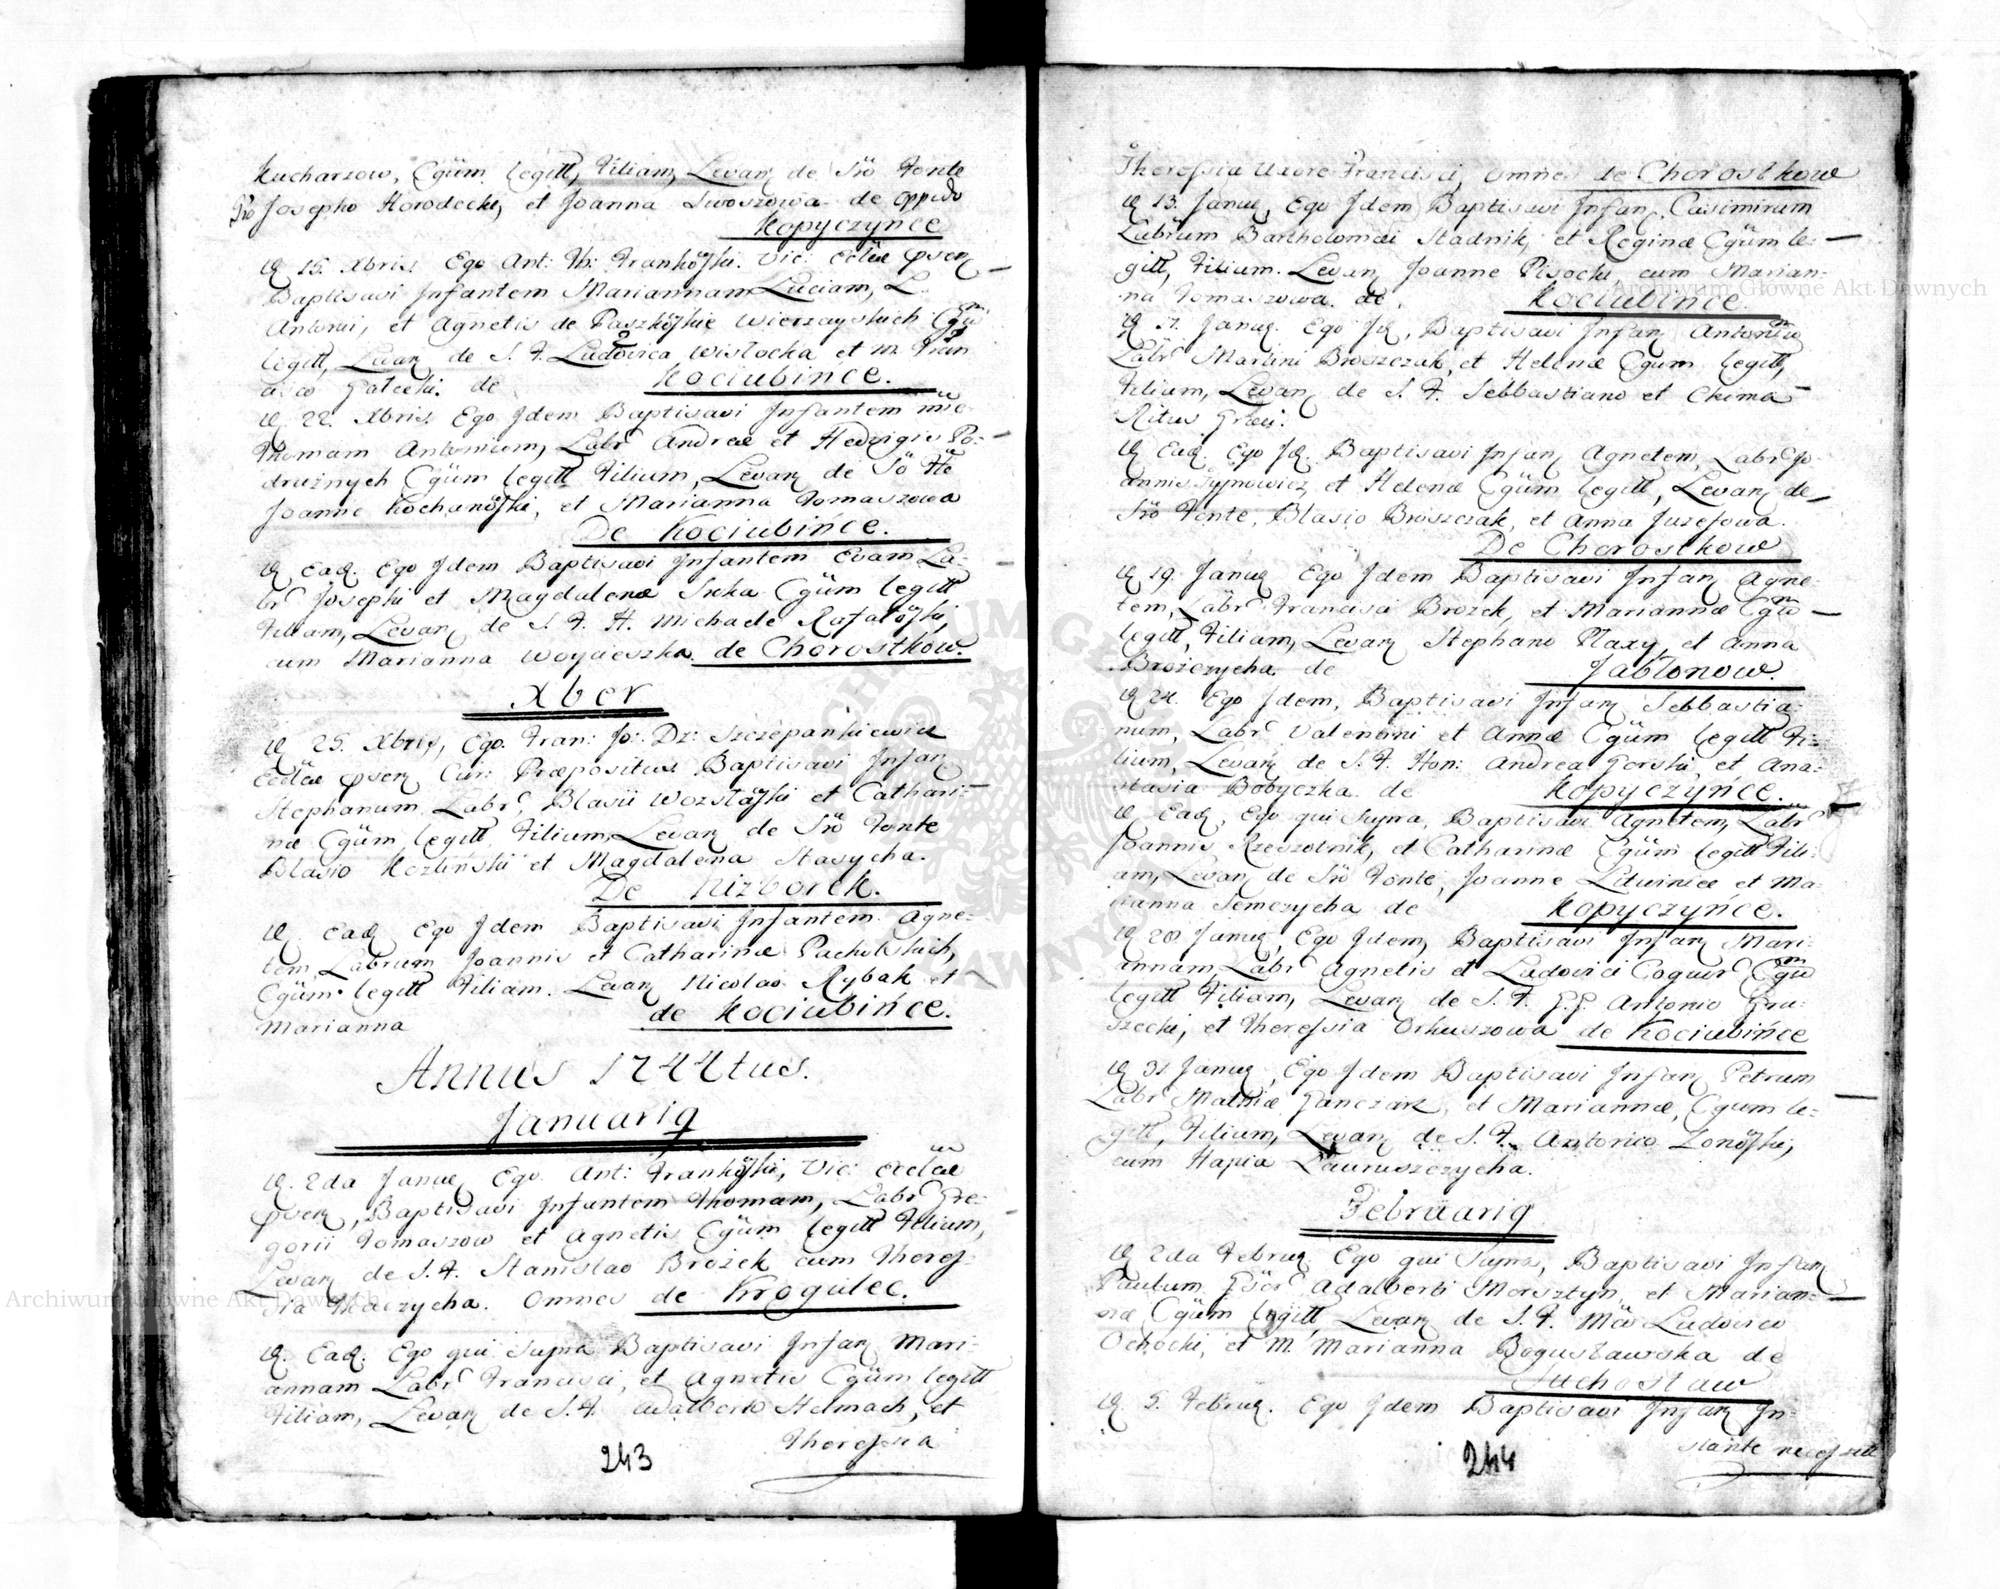 Kucharzow, Cgüm legitt, Filiam, Levan de Sro Fonte
Pro Josepho Horodecki, et Joanna Lwoszowa de oppido
Kopyczynce
D 15. Xbris Ego Ant: Th: Frankowski Vic: Eclae
Baptisavi Infantem Mariannam Luciam, L.
Antonii, et Agnetis de Paszkowskie Wierzayskich
legitt, Levan de S. F. Ludovica Wisłocka et M. Fran
cisco Gałecki de
Kociubince.
D 22. Xbris. Ego Idem Baptisavi Infantem
Thomam Antonium, Labr Andreæ et Hedvigis Po-
drużnych Cgüm legitt Filium, Levan de Sro Fte
Joanne Kochanowski, et Marianna Tomaszowa
De Kociubińce.
D Ead. Ego Idem Baptisavi Infantem Evam La-
br Josephi et Magdalenæ Cgüm legitt
Filiam, Levan de S. F. H. Michaele Rafałowski,
cum Marianna Woycieszka de Chorostkow.
Xber
D 25. Xbris, Ego Fran: Jo: Dz: Szczepankiewicz
Eclae Cur: Præpositus Baptisavi Infan
Stephanum Labr Blasii Wozstawski et Cathari-
næ Cgüm legitt Filium, Levan de Sro Fonte
Blasio Kozliński et Magdalena Stasycha.
De Nizborek.
D Ead Ego Idem Baptisavi Infantem Agne-
tem Labrum Joannis et Catharinæ Pacholskich,
Cgüm legitt Filiam. Levan Nicolao Rybak et
Marianna de Kociubińce.
Annus 1744tus.
Januarig
D. 2da Janua Ego Ant: Frankowski, Vic: Eclae
Baptisavi Infantem Thomam, Labr Gre-
gorii Tomaszow et Agnetis Cgüm legitt Filium,
Levan de S. F. Stanislao Brożek cum Theres-
sia Tkaczycha. Omnes de Krogulec.
D. Ead. Ego qui Supra Baptisavi Infan Mari-
annam Labr Francisci, et Agnetis Cgüm legitt
Filiam, Levan de S. F. Adalberto Stelmach, et
Theressia
243
Theressia Uxore Francisci, omnes de Chorostkow
D 13. Janua, Ego Idem Baptisavi Infan, Casimirum
Labrum Bartholomæi Stadnik, et Reginæ Cgüm le-
gitt, Filium. Levan Joanne Pisocki, cum Marian-
na Tomaszowa de, Kociubince.
D 17. Janua. Ego Id, Baptisavi Infan Antoniu
Labr Martini Broszczak, et Helenæ Cgum legitt,
Filium, Levan de S. F. Sebbastiano et Chima
Ritus Græci.
D Ead. Ego Id. Baptisavi Infan Agnetem, Labr Jo-
annis et Helenæ Cgüm legitt, Levan de
Sro Fonte, Blasio Broszczak, et Anna Juzefowa.
De Chorostkow
D 19. Janua Ego Idem Baptisavi Infan Agne-
tem, Labr Francisci Brożek, et Mariannæ Cgu
legitt, Filiam, Levan Stephano Plaxy, et Anna
Brożczycha de Jabłonow.
D 24. Ego Idem, Baptisavi Infan Sebbastia-
num, Labr Valentini et Annæ Cgüm legitt Fi-
lium, Levan de S. F. Hon: Andrea Gorski, et Ana-
stasia Bobyczka de Kopyczyńce.
D Ead, Ego qui Supra, Baptisavi Agnetem, Labr
Joannis Rzeszotnik, et Catharinæ Cgüm legitt Fili-
am, Levan de Sro Fonte, Joanne et Ma-
rianna Semczycha de Kopyczyńce.
D 28 Janua, Ego Idem, Baptisavi Infan Mari-
annam, Labr Agnetis et Ludovici Coquis Cgu
legitt Filiam, Levan de S. F. G.G. Antonio Gru-
szecki, et Theressia Orkuszowa de Kociubińce
D 31 Janua, Ego Idem Baptisavi Infan Petrum
Labr Mathiæ Ganczarz, et Mariannæ, Cgum le-
gitt, Filium, Levan de S. F. Antonio Zonowski,
cum Hapia
Februarig
D 2da Februa Ego qui Supra, Baptisavi Infan
Paulum Adalberti Morsztyn, et Marian-
næ Cgüm legitt Levan de S. F. Ludovico
Ochocki, et M. Marianna Bogusławska de
Suchostaw
D. 5. Februa. Ego Idem Baptisavi Infan In-
stante necessitt
244
Archiwum Główne Akt Dawnych
Archiwum Główne Akt Dawnych